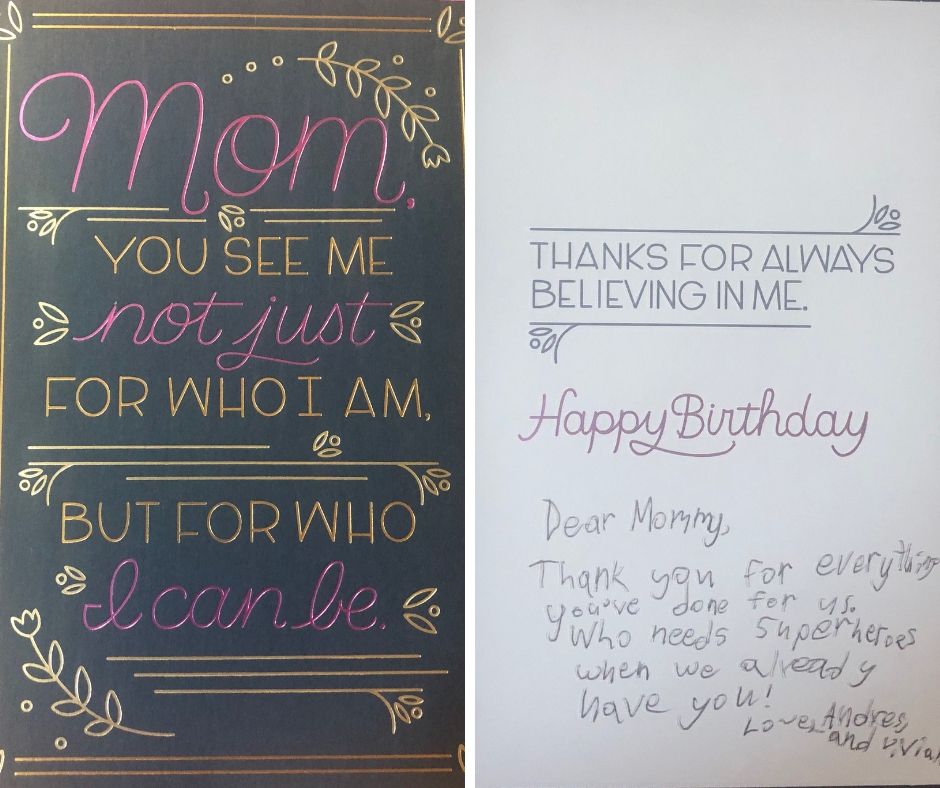 Mom,
YOU SEE ME
not just
FOR WHO I AM,
BUT FOR WHO
I can be.
THANKS FOR ALWAYS
BELIEVING IN ME.
Happy Birthday
Dear Mommy,
Thank you for everything
you've done for us.
Who needs superheroes
when we already
have you!
Love, Andres,
and